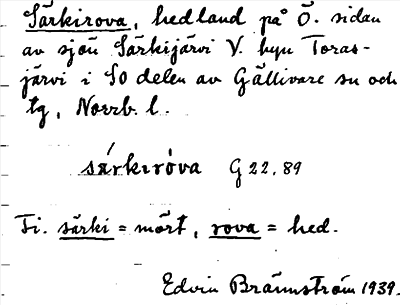 Särkirova, hedland på Ö. sidan
av sjön Särkijärvi V. byn Toras-
järvi i SO delen av Gällivare sn och
tg, Norrb. l.
särkiròva G 22.89
Fi. särki = mört, rova = hed.
Edvin Brännström 1939.